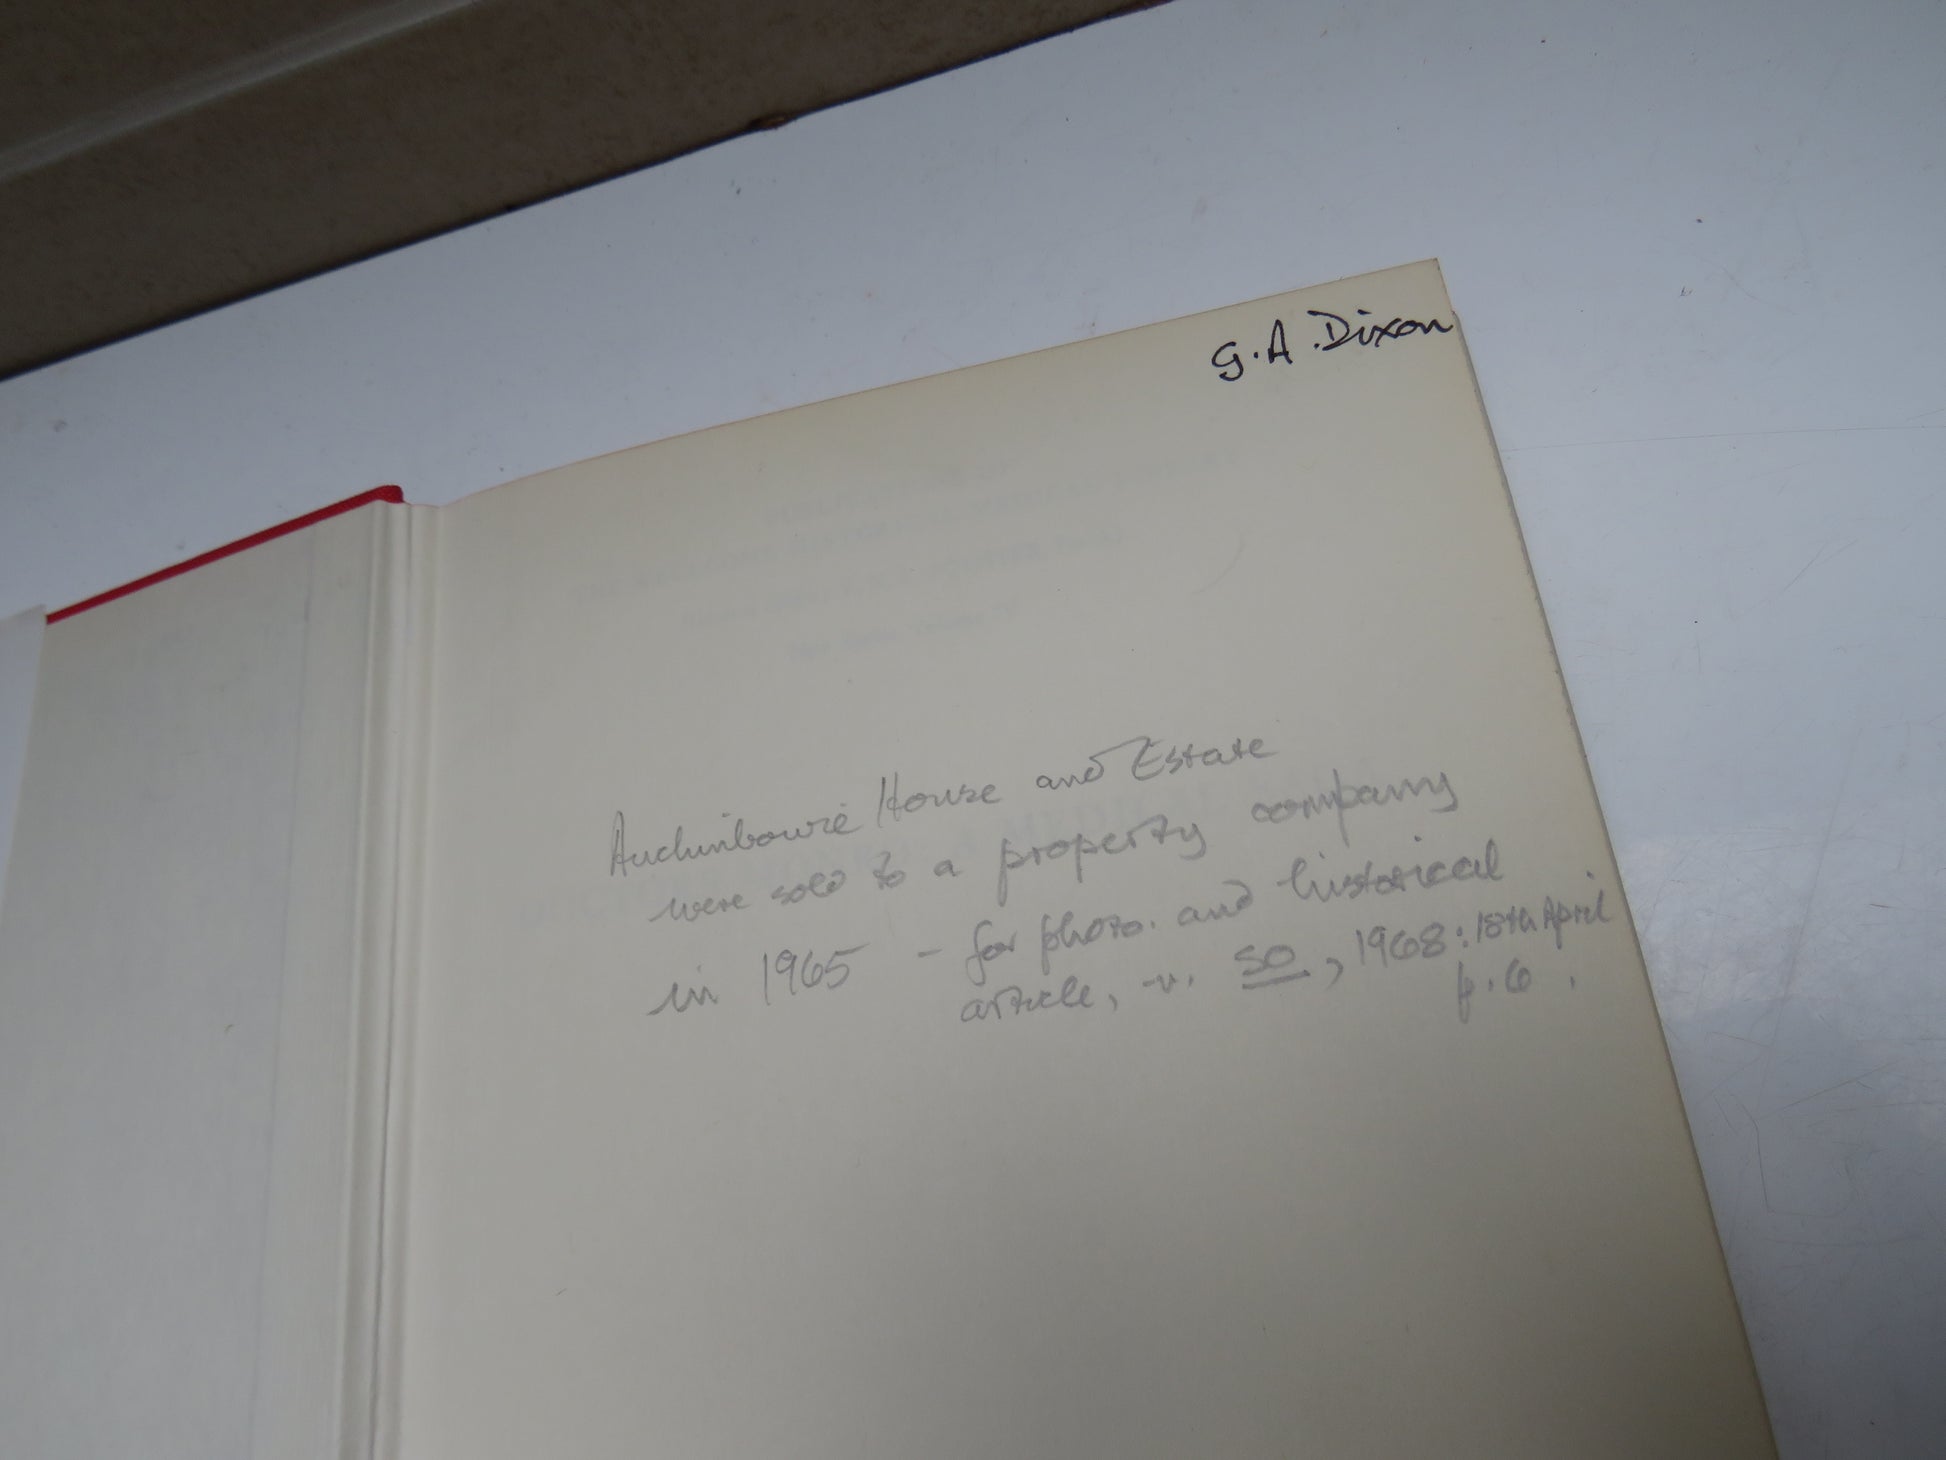 G. A. Dixon
Auchinbowie House and Estate
were sold to a property company
in 1965 - for photo. and historical
article, v. SO, 1968: 18th April
p. 6.